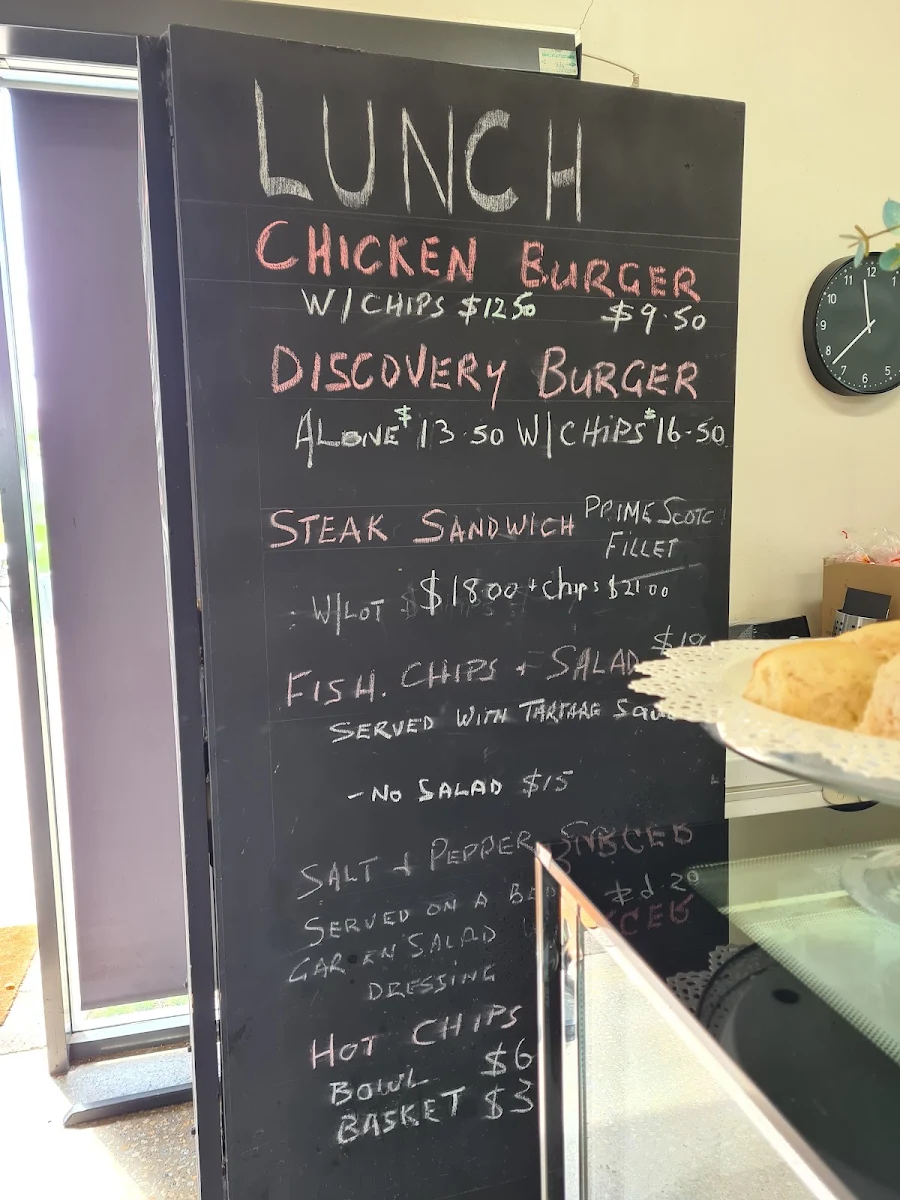 LUNCH
CHICKEN BURGER
W/CHIPS $12.50 $9.50
DISCOVERY BURGER
ALONE $13.50 W/CHIPS $16.50
STEAK SANDWICH PRIME SCOTC
FILLET
W/LOT $18.00 + chips $21.00
FISH. CHIPS + SALAD
SERVED WITH TARTARE
- NO SALAD $15
SALT + PEPPER
SERVED ON A
GARDEN SALAD
DRESSING
HOT CHIPS
BOWL $6
BASKET $3
10 11 12 1
9
8 7 6 5